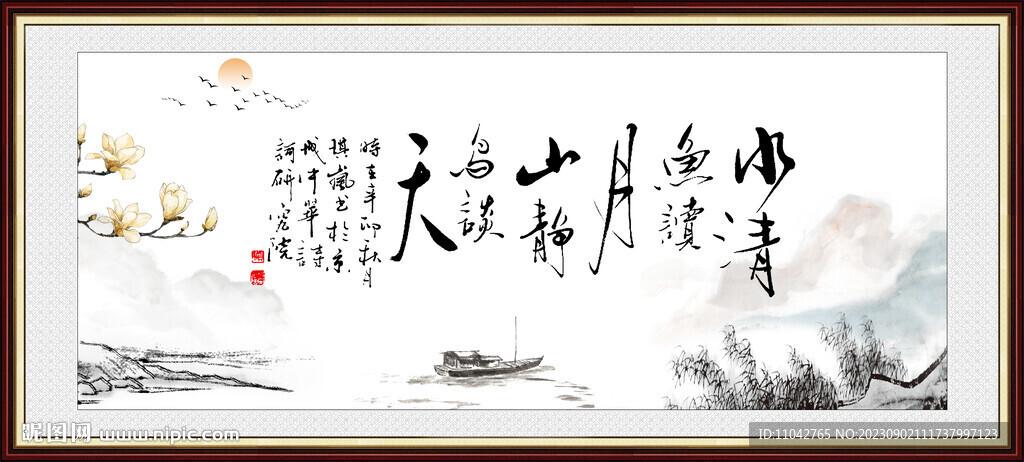 水清
魚讀
月
山靜
鳥談
天
時在辛卯秋月
琪嵐书於京
城中華詩
詞研究院
昵图网 www.nipic.com
ID:11042765 NO:20230902111737997123